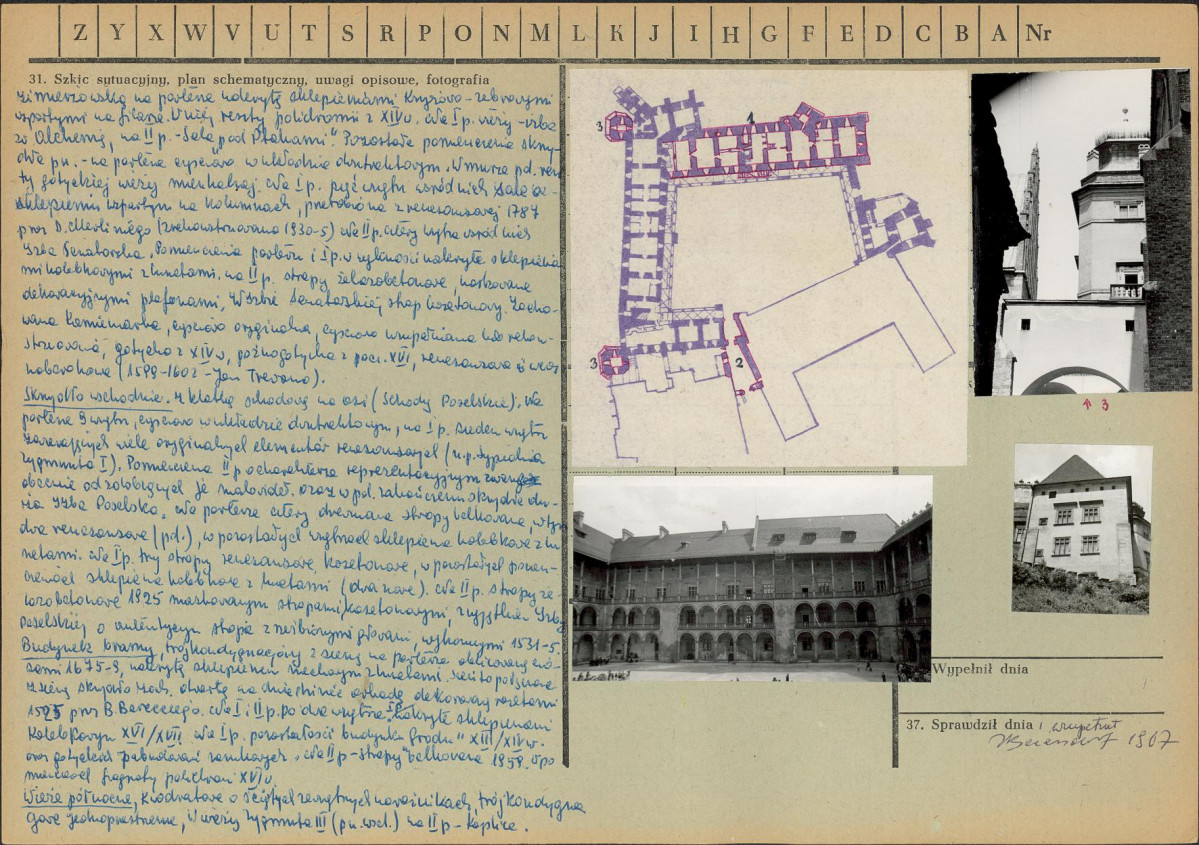 Z Y X W V U T S R P O N M L K J I H G F E D C B A Nr
31. Szkic sytuacyjny, plan schematyczny, uwagi opisowe, fotografia
na parterze nakryte sklepieniami krzyżowo-żebrowymi
wspartymi na filarze. W niej reszty polichromii z XIV w. Na I p. wieży - izba
Alchemii, na II p. - Sala "pod Ptakami". Pozostałe pomieszczenia skrzy-
dła pn. - na parterze częściowo w układzie dwutraktowym. W murze pd. resz-
ty gotyckiej wieży mieszkalnej. Na I p. pięć wnętrz wśród nich sala ze
sklepieniem wspartym na kolumnach, przerobiona z renesansowej 1787
przez D. Merliniego (zrekonstruowana 1930-5) Na II p. cztery wnętrza wśród nich
Izba Senatorska. Pomieszczenia parteru i I p. w całości nakryte sklepienia-
mi kolebkowymi z lunetami, na II p. stropy żelazobetonowe, maskowane
dekoracyjnymi plafonami, w Izbie Senatorskiej strop kasetonowy. Zacho-
wana kamieniarka, częściowo oryginalna, częściowo uzupełniana lub rekon-
struowana, gotycka z XIV w., późnogotycka z pocz. XVI, renesansowa i wczes-
nobarokowa (1599-1602 - Jan Trevano).
Skrzydło wschodnie. Z klatką schodową na osi (Schody Poselskie). Na
parterze 9 wnętrz, częściowo w układzie dwutraktowym, na I p. siedem wnętrz
zawierających wiele oryginalnych elementów renesansowych (n.p. sypialnia
Zygmunta I). Pomieszczenia II p. o charakterze reprezentacyjnym
obecnie od zdobiących je malowideł, oraz w pd. zakończeniu skrzydła
Izba Poselska. Na parterze cztery drewniane stropy belkowane, w tym
dwa renesansowe (pd.), w pozostałych wnętrzach sklepienia kolebkowe z lu-
netami. Na I p. trzy stropy renesansowe, kasetonowe, w pozostałych pomiesz-
czeniach sklepienia kolebkowe z lunetami (dwa nowe). Na II p. stropy że-
lazobetonowe 1925 maskowanym stropami kasetonowymi, z wyjątkiem Izby
Poselskiej o autentycznym stropie z rzeźbionymi głowami, wykonanymi 1531-5.
Budynek bramny, trójkondygnacyjny z sienią na parterze
1675-8, nakrytą sklepieniem z lunetami.
z sienią skrzydło zach. otwartą na dziedziniec arkadą dekorowaną rozetami
1525 przez B. Berecciego. Na I i II p. po dwa wnętrza. I p. nakryte sklepieniami
kolebkowymi XVI/XVII. Na I p. pozostałości budynku "Grodu" XIII/XIV w.
oraz gotyckich zabudowań zamkowych. Na II p. - stropy belkowane 1958. W po
mieszczeniach fragmenty polichromii XVI w.
Wieże północne, kwadratowe o ściętych zewnętrznych narożnikach, trójkondygna
cjowe jednoprzestrzenne, w wieży Zygmunta III (pn. wsch.) na II p - Kaplica.
1
3
3
2
↑ 3
Wypełnił dnia
37. Sprawdził dnia i uzupełnił
1967